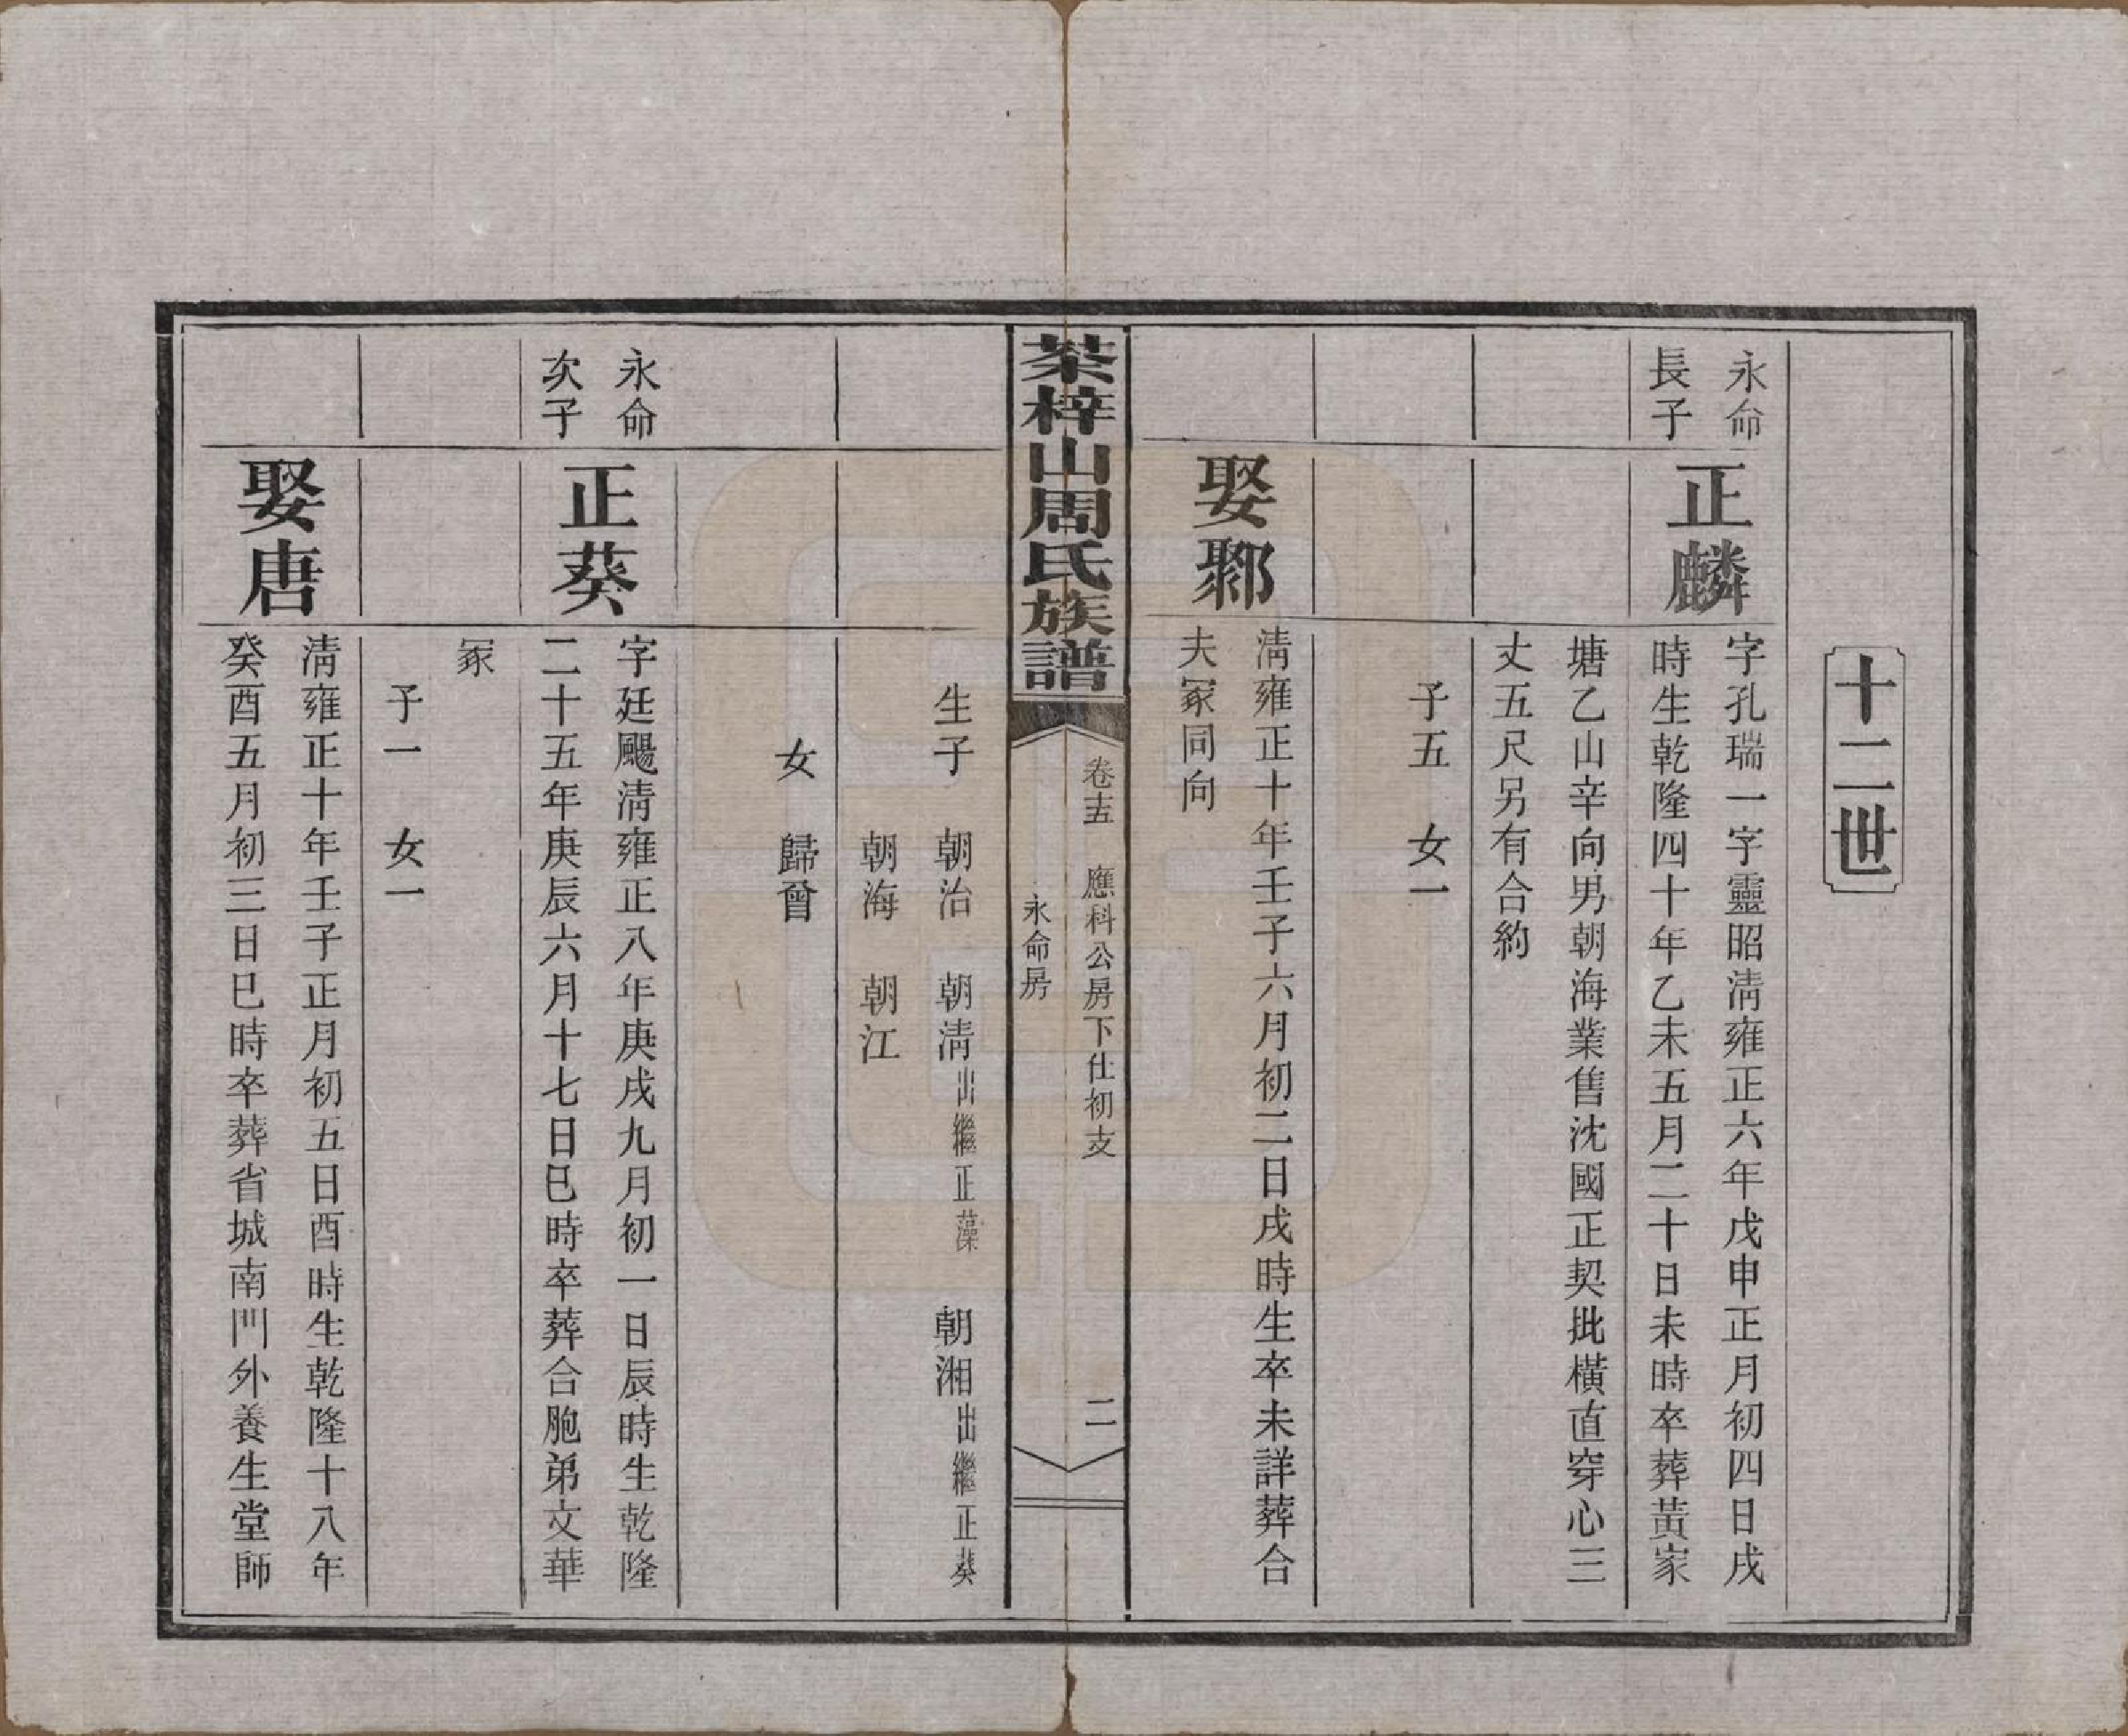 十二世
永命
長子
正麟
字孔瑞一字靈昭清雍正六年戊申正月初四日戌
時生乾隆四十年乙未五月二十日未時卒葬黃家
塘乙山辛向男朝海業售沈國正契批橫直穿心三
丈五尺另有合約
子五 女一
娶鄹
清雍正十年壬子六月初二日戌時生卒未詳葬合
夫冢同向
茶梓山周氏族譜
卷十五 應科公房下仕初支
永命房
二
生子 朝治 朝清出繼正藻 朝湘出繼正葵
朝海 朝江
女 歸曾
永命
次子
正葵
字廷颺清雍正八年庚戌九月初一日辰時生乾隆
二十五年庚辰六月十七日巳時卒葬合胞弟文華
冢
子一 女一
娶唐
清雍正十年壬子正月初五日酉時生乾隆十八年
癸酉五月初三日巳時卒葬省城南門外養生堂師